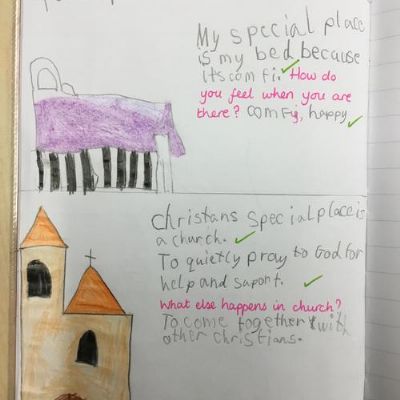 My special place
is my bed because
its comfi. How do
you feel when you are
there? comfy, happy
Christans special place is
a church.
To quietly pray to God for
help and saport.
What else happens in church?
To come together with
other christians.